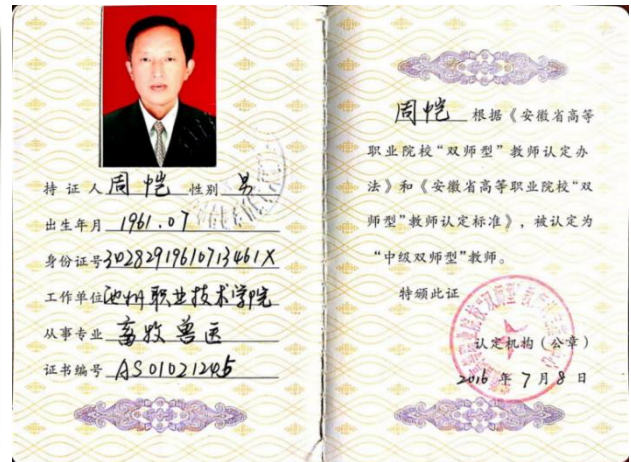 持证人 周恺 性别 男
出生年月 1961.07
身份证号 30282919610713461X
工作单位 池州职业技术学院
从事专业 畜牧兽医
证书编号 AS01021245
周恺 根据《安徽省高等
职业院校“双师型”教师认定办
法》和《安徽省高等职业院校“双
师型”教师认定标准》，被认定为
“中级双师型”教师。
特颁此证
认定机构（公章）
2016 年 7 月 8 日